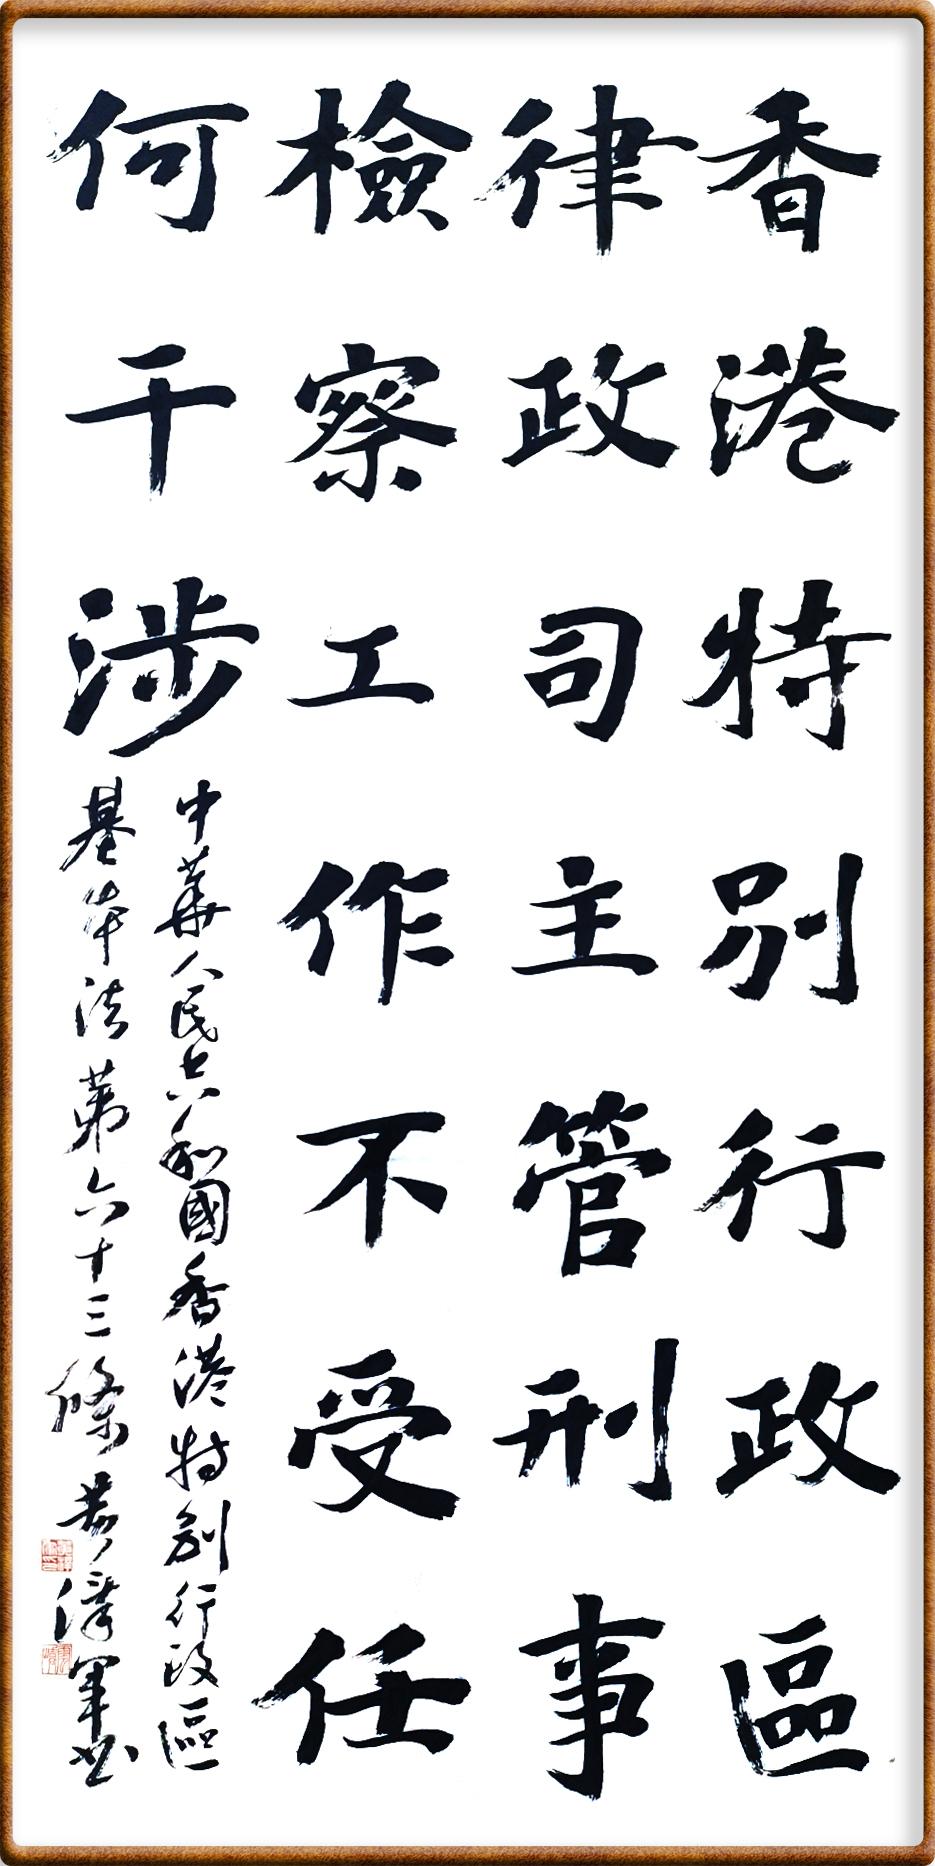 香港特別行政區
律政司主管刑事
檢察工作不受任
何干涉
中華人民共和國香港特別行政區
基本法第六十三條 黄澤軍书